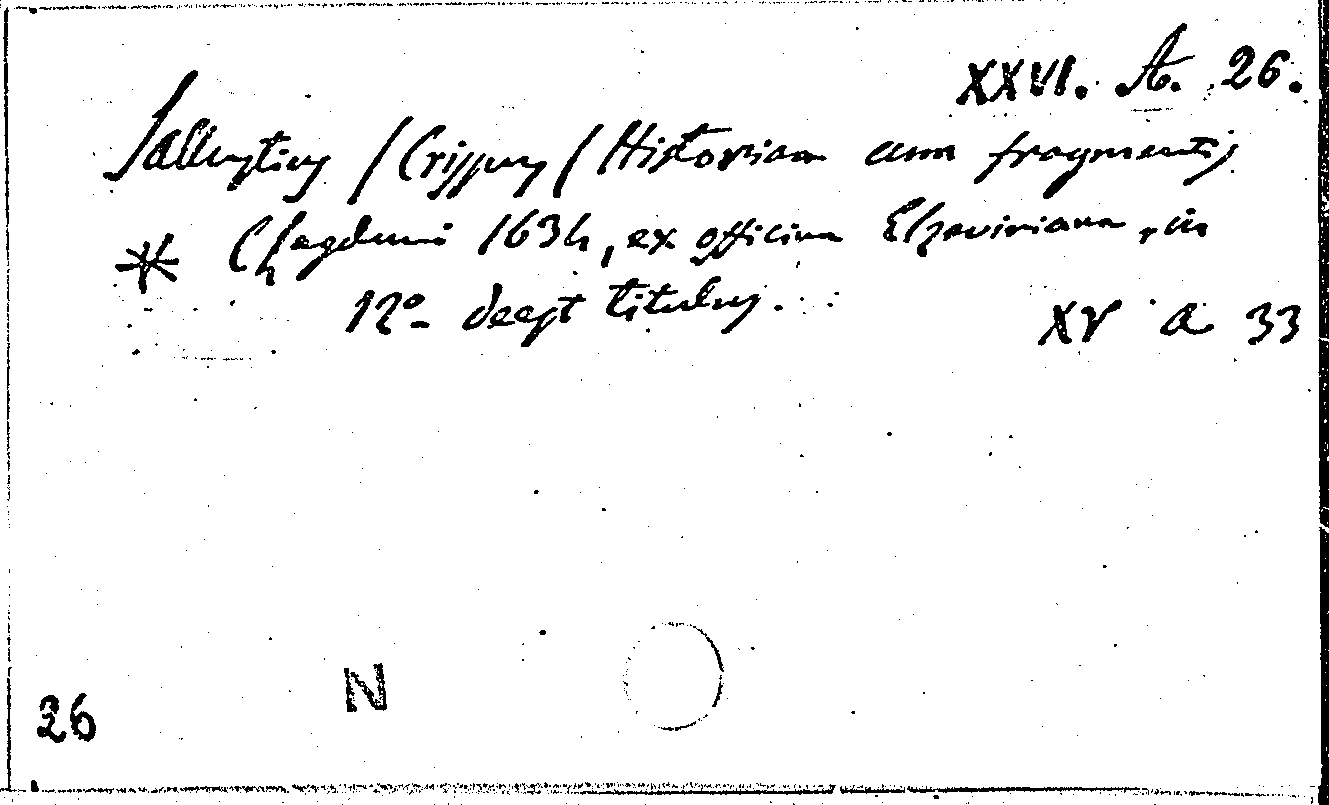 XXVI. A. 26.
Sallustius /Crispus/ Historiam cum fragmentis
* Lugduni 1634, ex officina Elzeviriana, in
12º deest titulus.
XV a 33
N
26